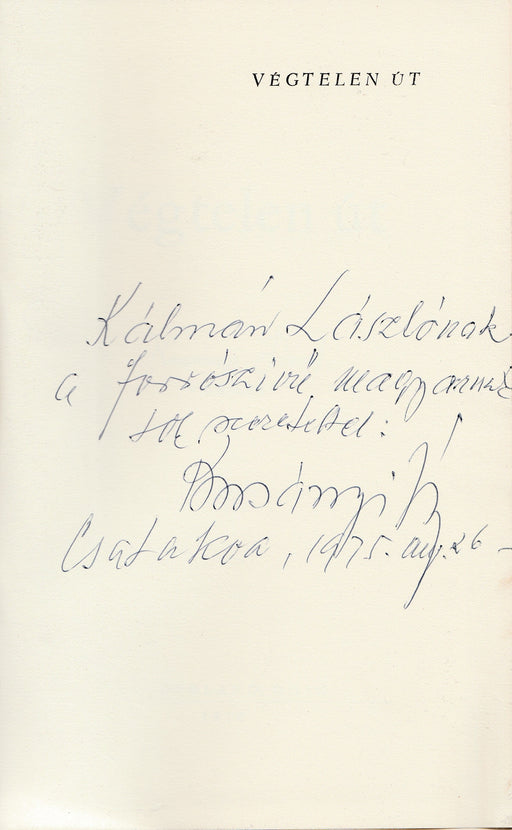 VÉGTELEN ÚT
Kálmán Lászlónak
a forrószívü magyarnak
sok szeretettel:
Csatakva, 1975. aug. 26